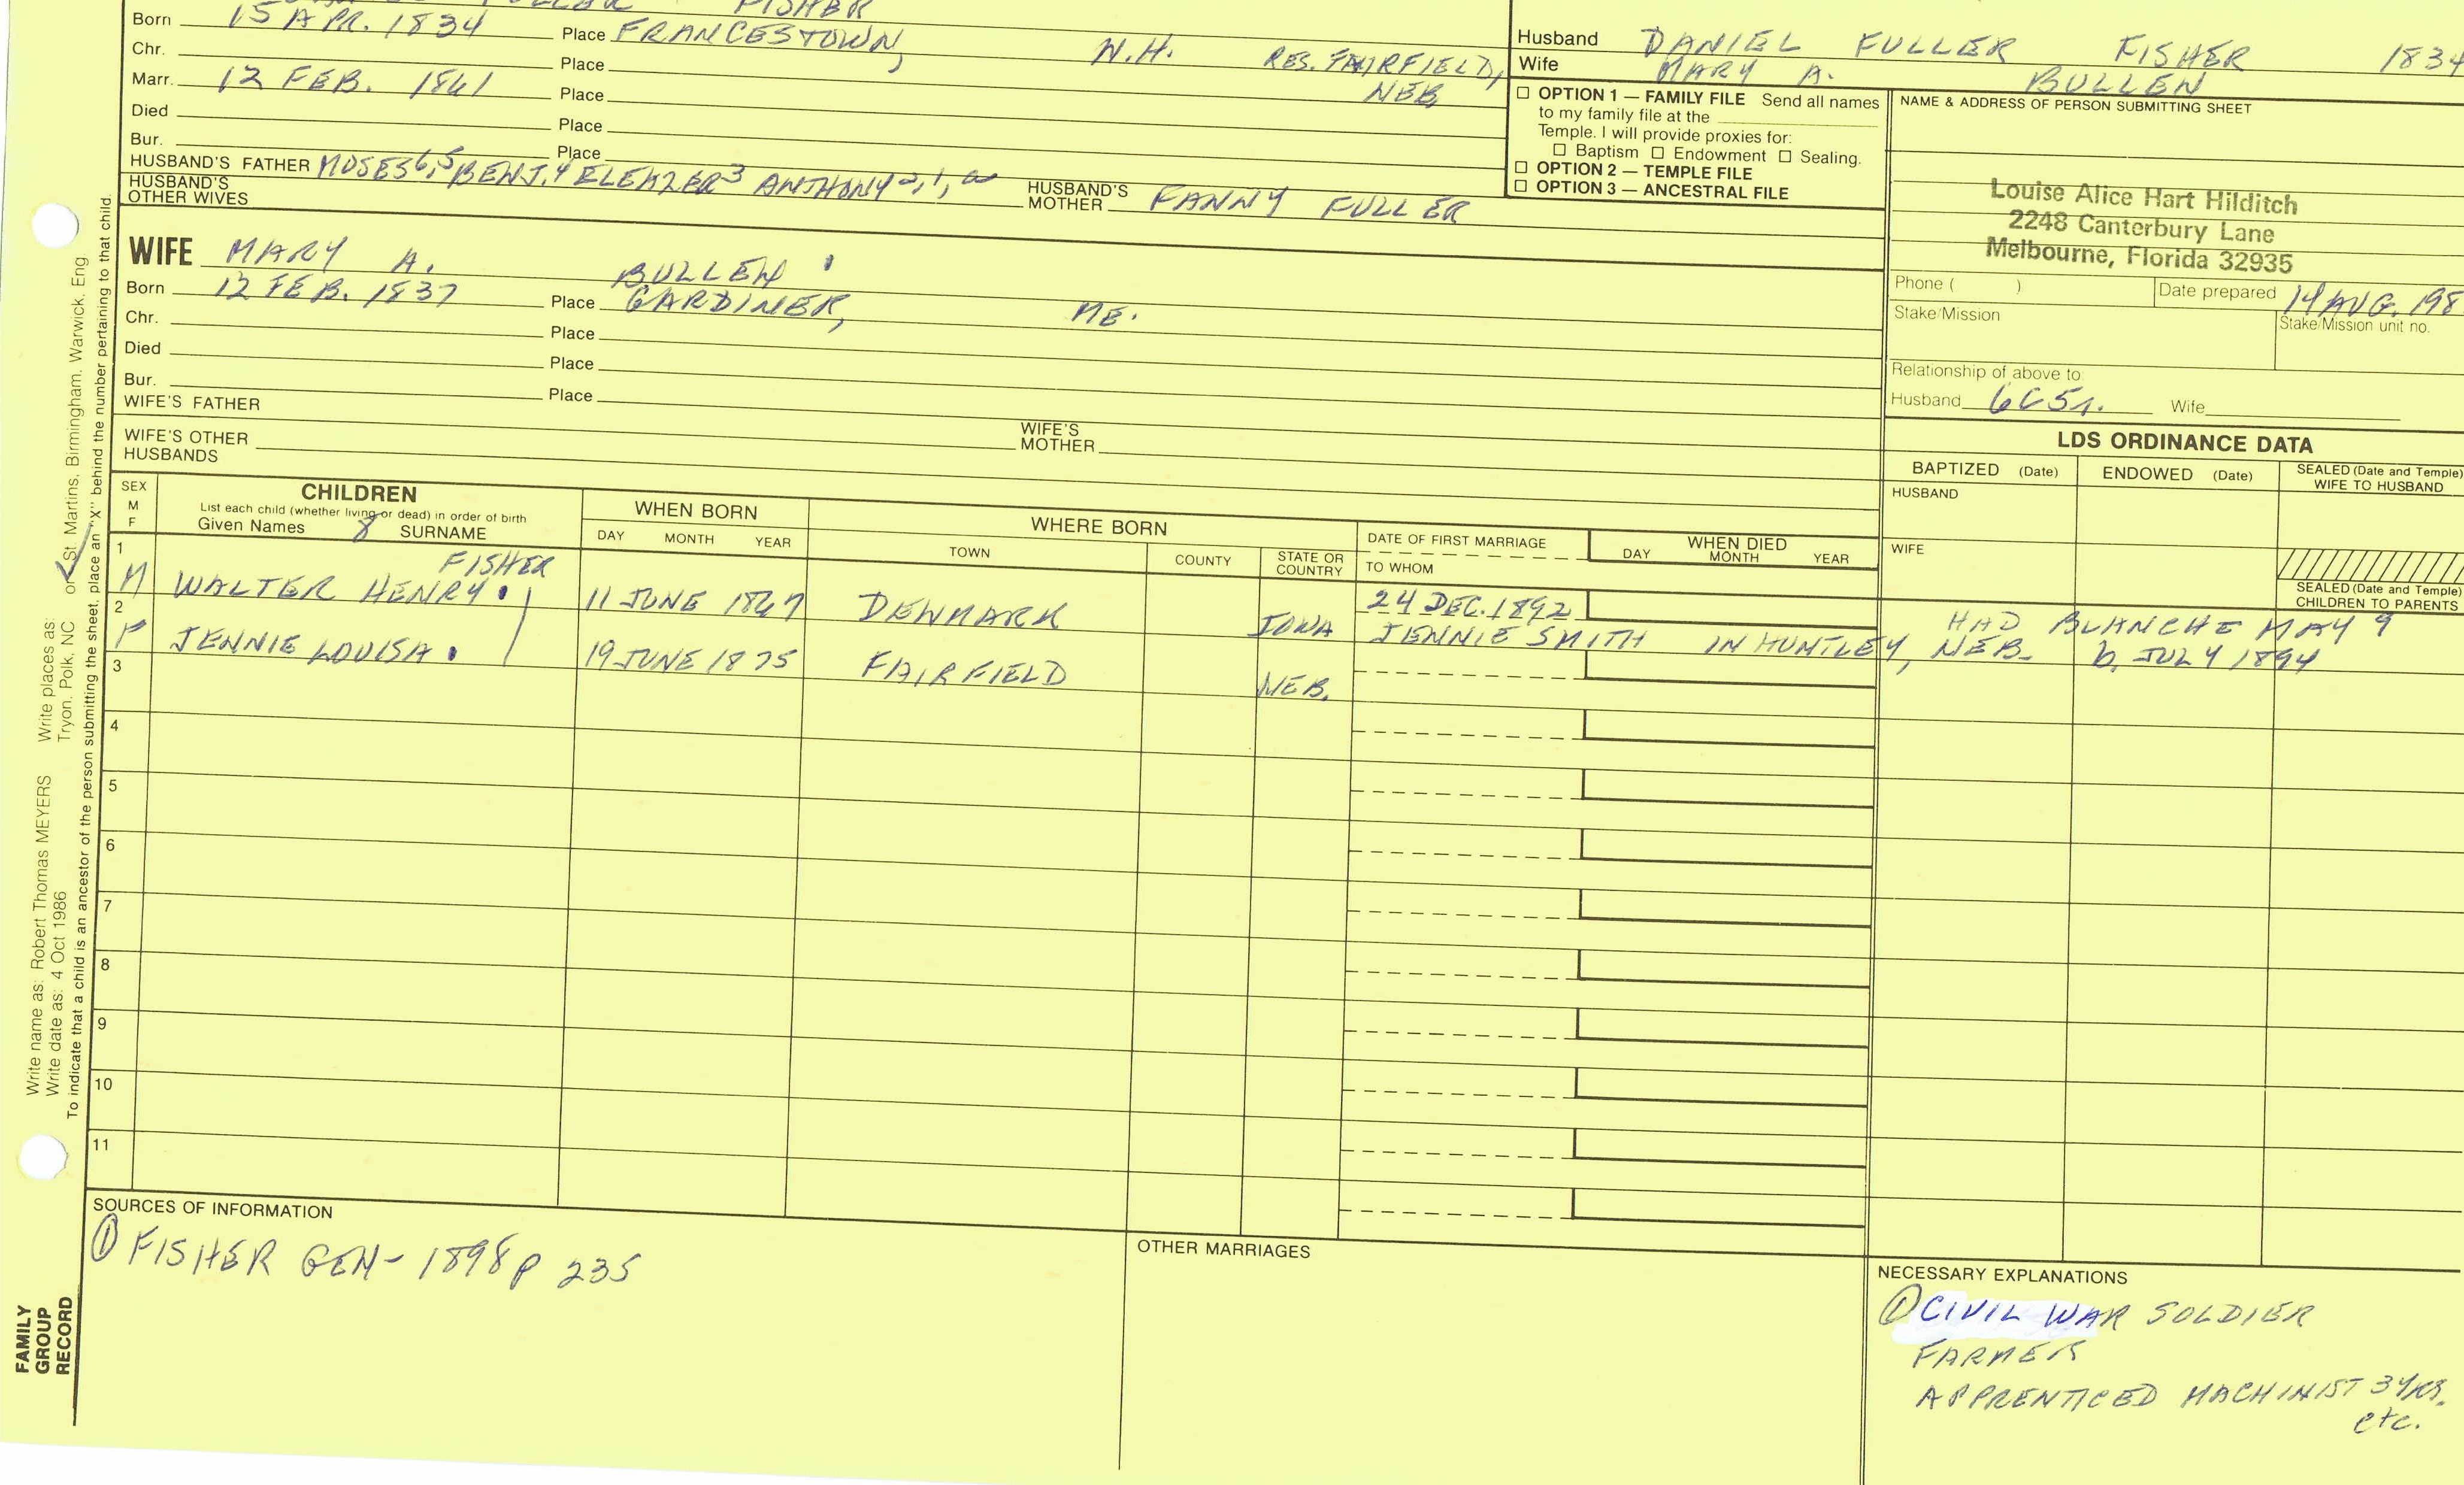 FISHER
Born 15 APR. 1834 Place FRANCESTOWN, N.H. RES. FAIRFIELD, NEB.
Chr. Place
Marr. 12 FEB. 1861 Place
Died Place
Bur. Place
HUSBAND'S FATHER MOSES6,5 BENJ.4 ELEAZER3 ANTHONY2,1, HUSBAND'S MOTHER FANNY FULLER
HUSBAND'S OTHER WIVES
WIFE MARY A. BULLEN
Born 12 FEB. 1837 Place GARDINER, ME.
Chr. Place
Died Place
Bur. Place
WIFE'S FATHER WIFE'S MOTHER
WIFE'S OTHER HUSBANDS
Husband DANIEL FULLER FISHER 1834
Wife MARY A. BULLEN
☐ OPTION 1 — FAMILY FILE Send all names
to my family file at the
Temple. I will provide proxies for:
☐ Baptism ☐ Endowment ☐ Sealing.
☐ OPTION 2 — TEMPLE FILE
☐ OPTION 3 — ANCESTRAL FILE
NAME & ADDRESS OF PERSON SUBMITTING SHEET
Louise Alice Hart Hilditch
2248 Canterbury Lane
Melbourne, Florida 32935
Phone ( ) Date prepared 14 AUG. 198
Stake/Mission Stake/Mission unit no.
Relationship of above to
Husband 6C5r. Wife
LDS ORDINANCE DATA
BAPTIZED (Date) ENDOWED (Date) SEALED (Date and Temple) WIFE TO HUSBAND
HUSBAND
WIFE
SEALED (Date and Temple) CHILDREN TO PARENTS
SEX M F
CHILDREN
List each child (whether living or dead) in order of birth
Given Names SURNAME
WHEN BORN
DAY MONTH YEAR
WHERE BORN
TOWN COUNTY STATE OR COUNTRY
DATE OF FIRST MARRIAGE
TO WHOM
WHEN DIED
DAY MONTH YEAR
1 M WALTER HENRY FISHER 11 JUNE 1867 DENMARK IOWA 24 DEC. 1892 JENNIE SMITH IN HUNTLEY, NEB. HAD BLANCHE MAY 9 b. JULY 1894
2 F JENNIE LOUISA 19 JUNE 1875 FAIRFIELD NEB.
3
4
5
6
7
8
9
10
11
SOURCES OF INFORMATION
① FISHER GEN- 1898 p 235
OTHER MARRIAGES
NECESSARY EXPLANATIONS
① CIVIL WAR SOLDIER
FARMER
APPRENTICED MACHINIST 3 YRS.
etc.
Write name as: Robert Thomas MEYERS Write places as: Tryon, Polk, NC or St. Martins, Birmingham, Warwick, Eng
Write date as: 4 Oct 1986
To indicate that a child is an ancestor of the person submitting the sheet, place an "X" behind the number pertaining to that child.
FAMILY
GROUP
RECORD